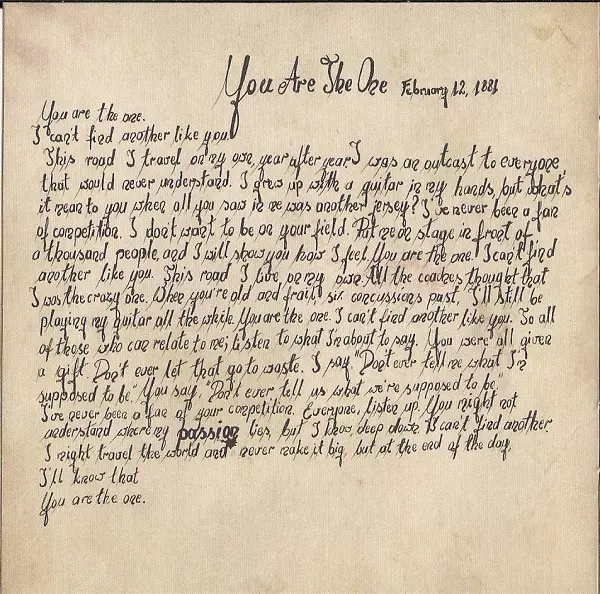 You Are The One February 12, 1881
You are the one.
I can't find another like you.
This road I travel on my own, year after year. I was an outcast to everyone
that would never understand. I grew up with a guitar in my hands, but what's
it mean to you when all you saw in me was another jersey? I've never been a fan
of competition. I don't want to be on your field. Put me on stage in front of
a thousand people, and I will show you how I feel. You are the one. I can't find
another like you. This road I live, on my own. All the coaches thought that
I was the crazy one. When you're old and frail, six concussions past, I'll still be
playing my guitar all the while. You are the one. I can't find another like you. So all
of those who can relate to me; listen to what I'm about to say. You were all given
a gift. Don't ever let that go to waste. I say, "Don't ever tell me what I'm
supposed to be." You say, "Don't ever tell us what we're supposed to be."
I've never been a fan of your competition. Everyone, listen up. You might not
understand where my passion lies, but I know, deep down, I can't find another.
I might travel the world and never make it big, but at the end of the day,
I'll know that
You are the one.